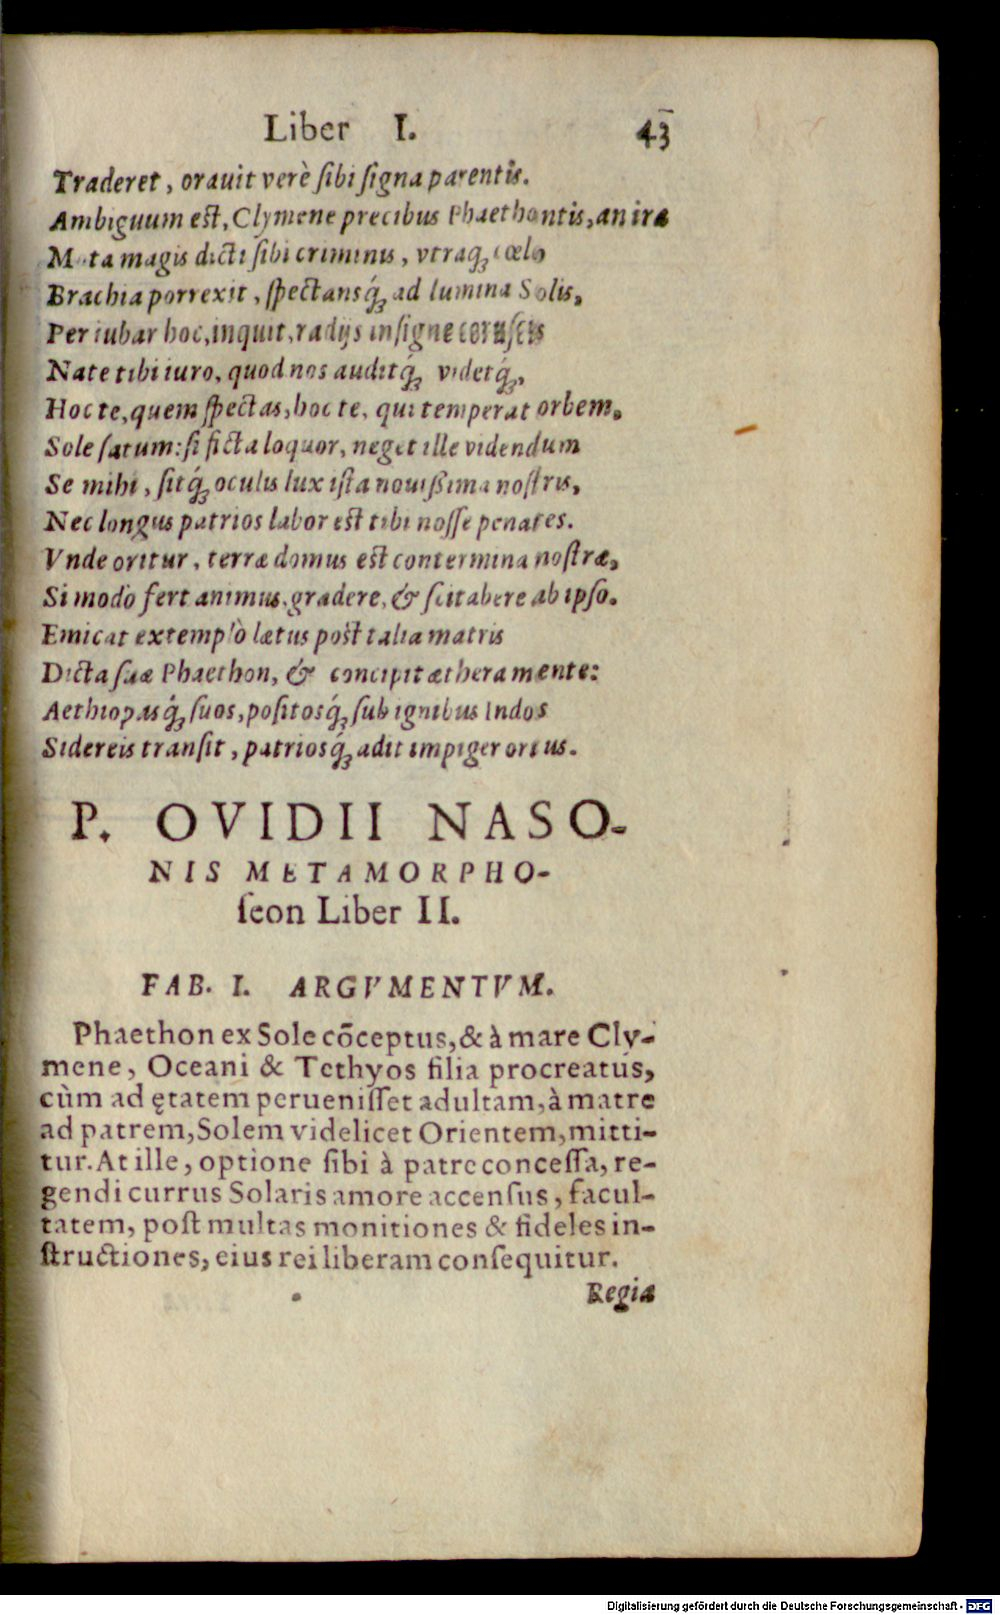 Liber I. 43
Traderet, orauit verè ſibi ſigna parentis.
Ambiguum eſt, Clymene precibus Phaethontis, an ira
Mota magis dicti ſibi criminis, vtraq́; cœlo
Brachia porrexit, ſpectansq́; ad lumina Solis,
Per iubar hoc, inquit, radijs inſigne coruſcis
Nate tibi iuro, quod nos auditq́; videtq́;,
Hoc te, quem ſpectas, hoc te, qui temperat orbem,
Sole ſatum: ſi ficta loquor, neget ille videndum
Se mihi, ſitq́; oculis lux iſta nouißima noſtris,
Nec longus patrios labor eſt tibi noſſe penates.
Vnde oritur, terræ domus eſt contermina noſtræ,
Si modò fert animus, gradere, & ſcitabere ab ipſo.
Emicat extemplò lætus poſt talia matris
Dicta ſuæ Phaethon, & concipit æthera mente:
Aethiopasq́; ſuos, poſitosq́; ſub ignibus Indos
Sidereis tranſit, patriosq́; adit impiger ortus.
P. OVIDII NASO-
NIS METAMORPHO-
ſeon Liber II.
FAB. I. ARGVMENTVM.
Phaethon ex Sole cõceptus, & à mare Cly-
mene, Oceani & Tethyos filia procreatus,
cùm ad ętatem perueniſſet adultam, à matre
ad patrem, Solem videlicet Orientem, mitti-
tur. At ille, optione ſibi à patre conceſſa, re-
gendi currus Solaris amore accenſus, facul-
tatem, poſt multas monitiones & fideles in-
ſtructiones, eius rei liberam conſequitur.
Regia
Digitalisierung gefördert durch die Deutsche Forschungsgemeinschaft - DFG